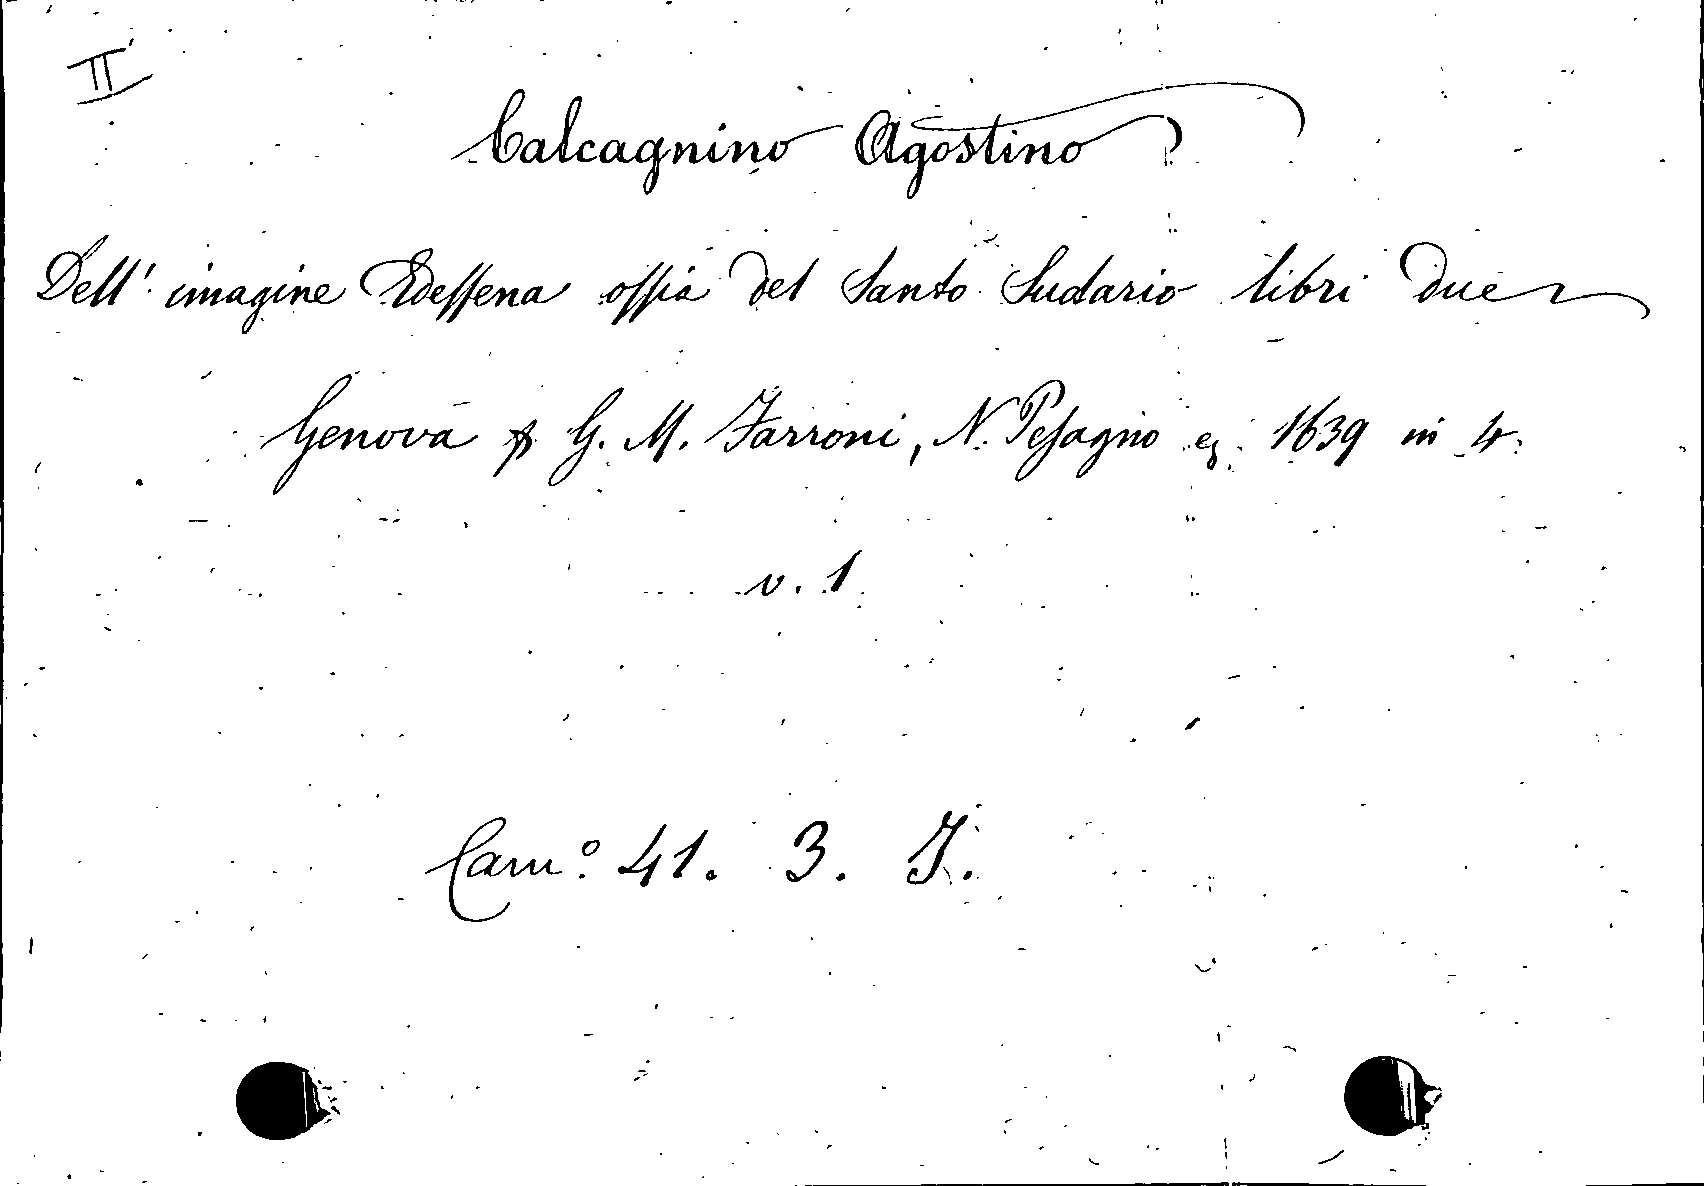 II
Calcagnino Agostino
Dell' imagine Edessena ossia del Santo Sudario libri due
Genova p. G. M. Farroni, N. Pesagno eg. 1639 in 4.
v. 1
Cam.º 41. 3. J.